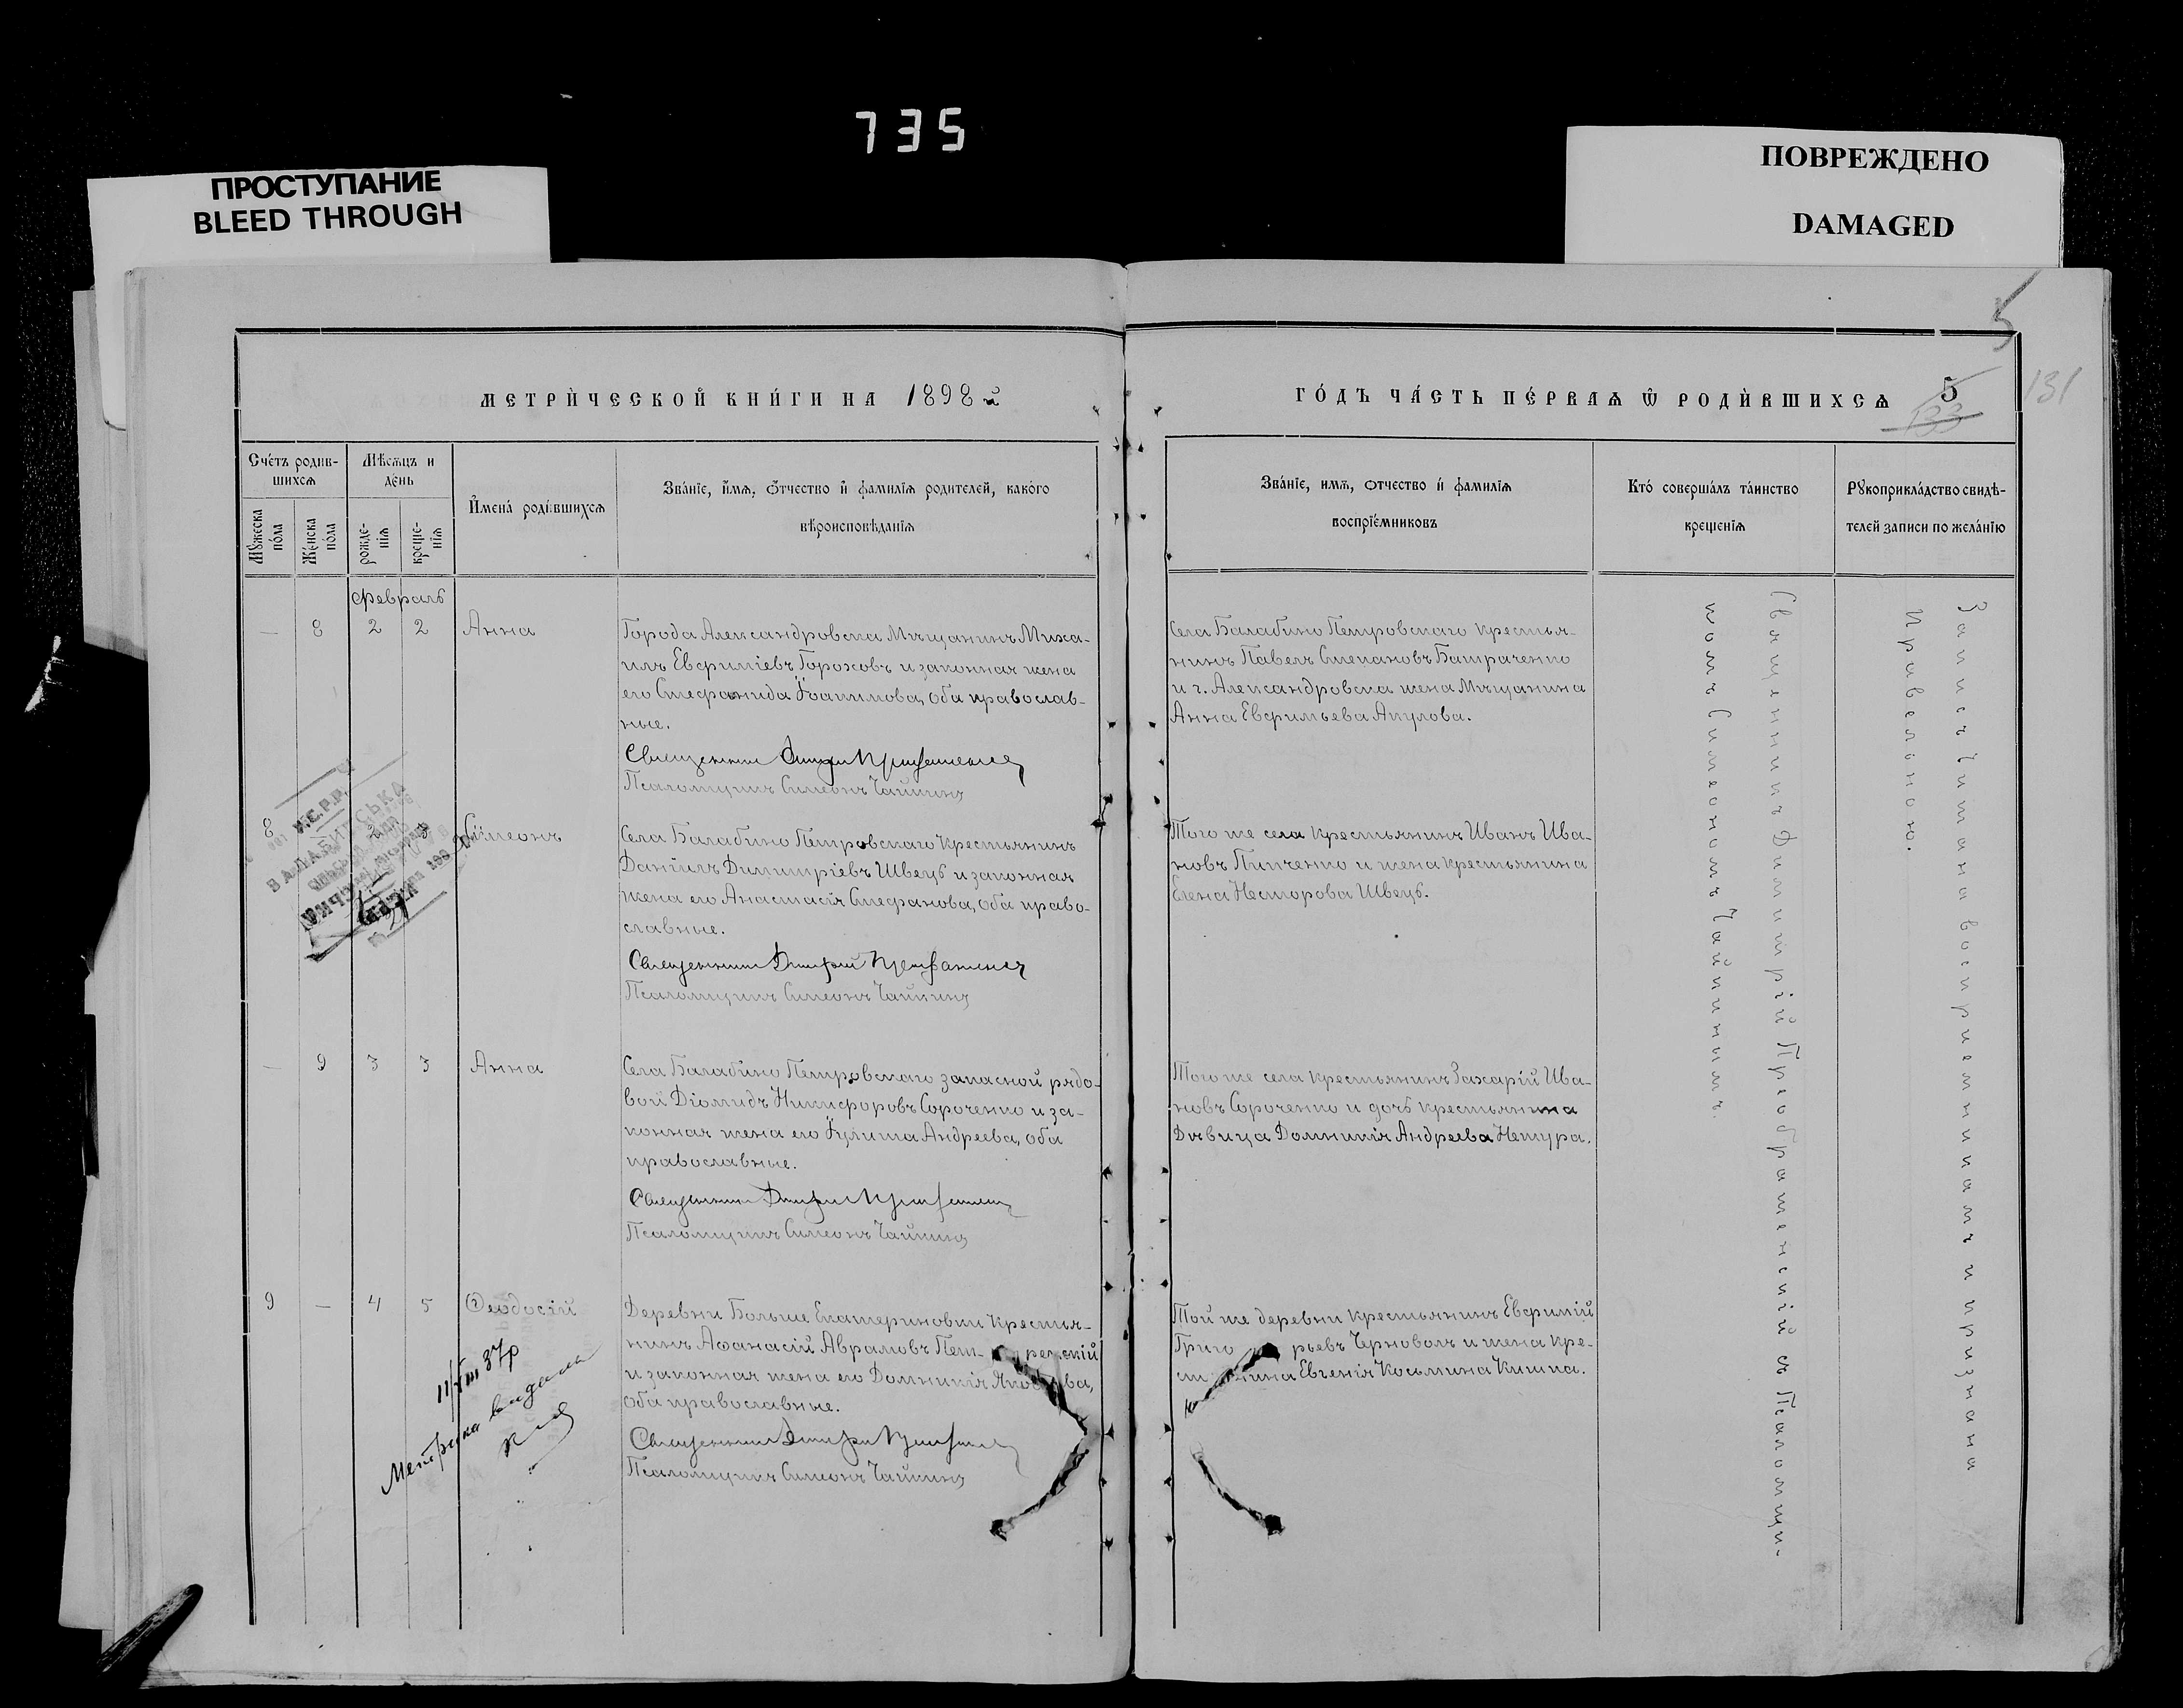 735
ПРОСТУПАНИЕ
BLEED THROUGH
ПОВРЕЖДЕНО
DAMAGED
5
МЕТРИ́ЧЕСКОЙ КНИ́ГИ НА 1898 й
ГО́ДЪ ЧА́СТЬ ПЕ́РВАѦ Ѡ҆ РОДИ́ВШИХСѦ 5
133
131
Сче́тъ родив-
шихсѧ
Мѣсѧцъ и
де́нь
Мꙋжеска
по́ла
Же́нска
по́ла
рожде-
нїѧ
креще-
нїѧ
И҆мена́ роди́вшихсѧ
Зва́нїе, и҆́мѧ, ѻ҆́тчество и҆ фамилїѧ родителей, како́го
вѣроисповѣданїѧ
Зва́нїе, имѧ, ѻтчество и҆ фамилїѧ
воспрїе́мниковъ
Кто́ соверша́лъ та́инство
крещенїѧ
Рꙋкоприкла́дство свидѣ-
телей записи по жела́нїю
Февраль
— 8 2 2 Анна
Города Александровска Мѣщанинъ Миха-
илъ Евфиміевъ Гороховъ и законная жена
его Стефанида Іоакимова, оба православ-
ные.
Священникъ Димитрій Преображенскій
Псаломщикъ Симеонъ Чайкинъ
Села Балабино Петровскаго крестья-
нинъ Павелъ Степановъ Батраченко
и г. Александровска жена Мѣщанина
Анна Евфимьева Акулова.
8 — 2 3 Симеонъ
Села Балабино Петровскаго крестьянинъ
Даніилъ Димитріевъ Швецъ и законная
жена его Анастасія Стефанова, оба право-
славные.
Священникъ Димитрій Преображенскій
Псаломщикъ Симеонъ Чайкинъ
Того же села крестьянинъ Иванъ Ива-
новъ Пипченко и жена крестьянина
Елена Несторова Швецъ.
— 9 3 3 Анна
Села Балабино Петровскаго запасной рядо-
вой Діомидъ Никифоровъ Сороченко и за-
конная жена его Іулита Андреева, оба
православные.
Священникъ Димитрій Преображенскій
Псаломщикъ Симеонъ Чайкинъ
Того же села крестьянинъ Захарій Ива-
новъ Сороченко и дочь крестьянина
Дѣвица Домникія Андреева Нетура.
9 — 4 5 Ѳеодосій
Деревни Больше Екатериновки крестья-
нинъ Аѳанасій Аврамовъ
и законная жена его Домникія
оба православные.
Священникъ Димитрій Преображенскій
Псаломщикъ Симеонъ Чайкинъ
Той же деревни крестьянинъ Евфимій
Григорьевъ Черноволъ и жена кре-
стьянина Евгенія Косьмина Кишка.
11/VIII 37р
Метрика видана
Священникъ Димитрій Преображенскій съ Псаломщи-
комъ Симеономъ Чайкинымъ.
Запись читана воспріемникамъ и признана
правельною.